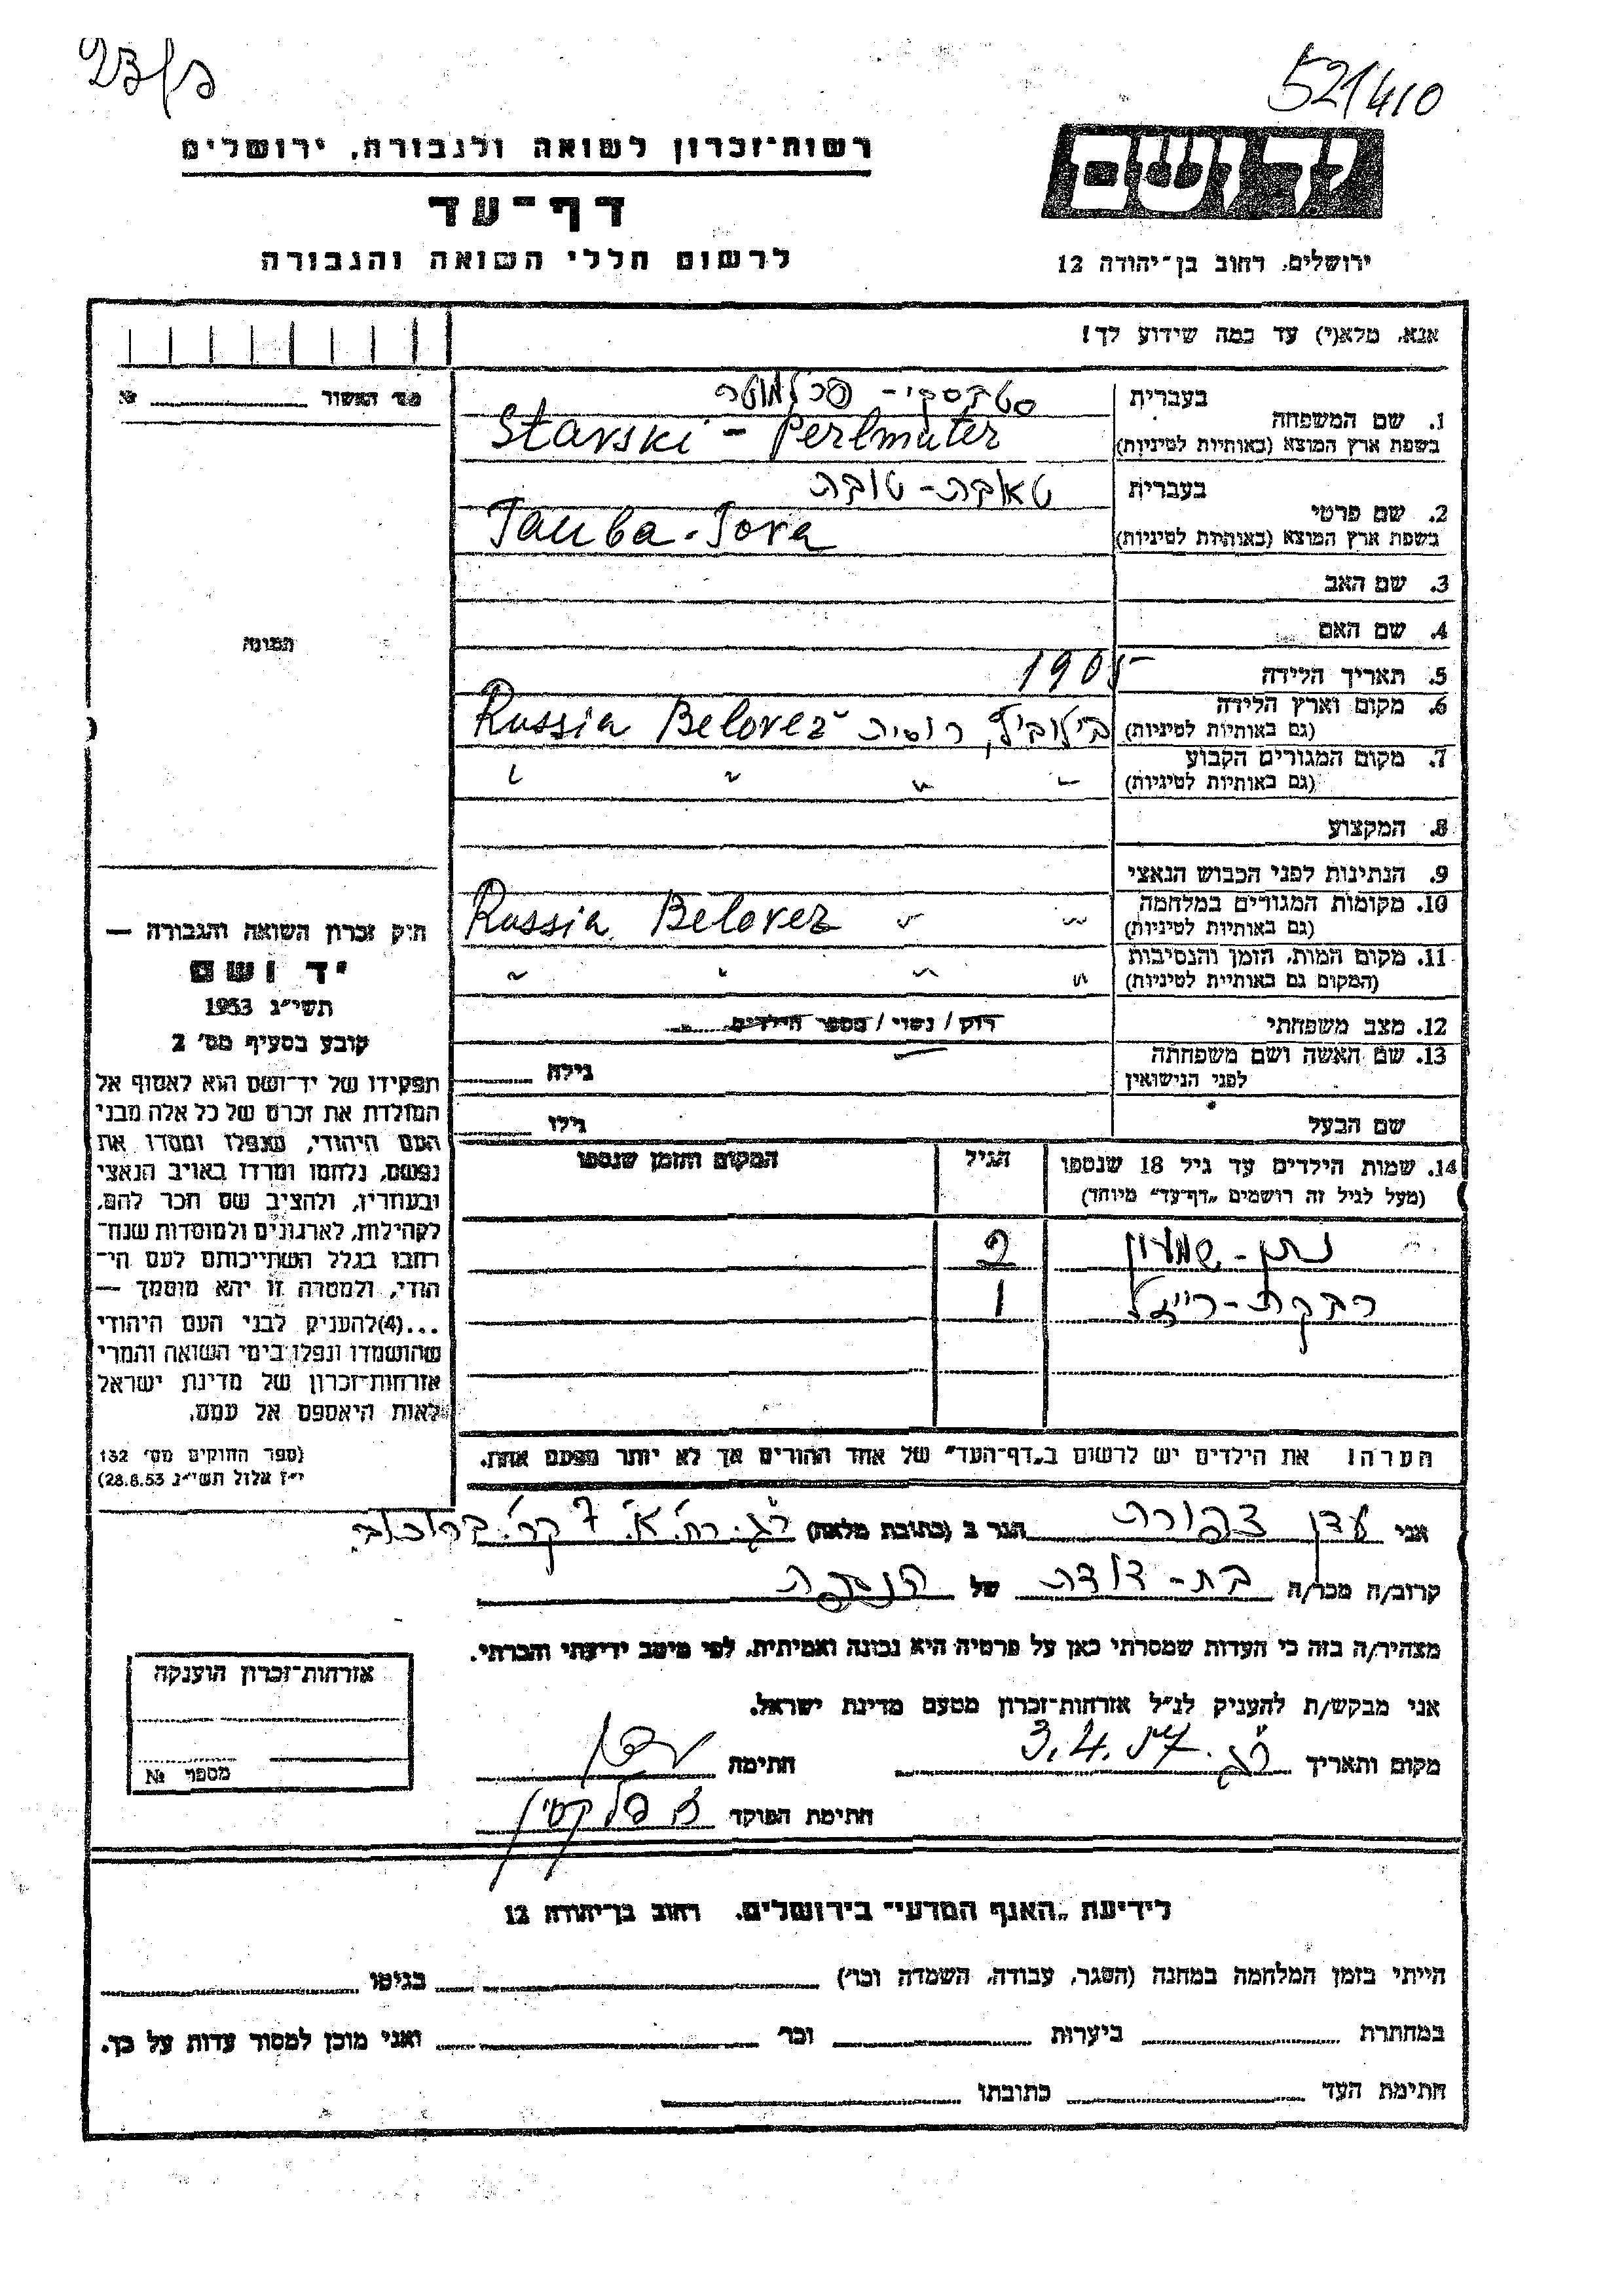 521410
רשות־זכרון לשואה ולגבורה, ירושלים
דף־עד
לרשום חללי השואה והגבורה
ידושם
ירושלים, רחוב בן־יהודה 12
אנא, מלא(י) עד כמה שידוע לך!
מס׳ האשור № 
1. שם המשפחה
בעברית
סטבסקי - פרלמוטר
בשפת ארץ המוצא (באותיות לטיניות)
Stavski - Perlmuter
2. שם פרטי
בעברית
טאובה - טובה
בשפת ארץ המוצא (באותיות לטיניות)
Tauba - Tova
3. שם האב
4. שם האם
תמונה
5. תאריך הלידה 1905
6. מקום וארץ הלידה
(גם באותיות לטיניות)
רוסיה Russia Belovez
7. מקום המגורים הקבוע
(גם באותיות לטיניות)
" " " "
8. המקצוע
9. הנתינות לפני הכבוש הנאצי
10. מקומות המגורים במלחמה
(גם באותיות לטיניות)
" " Russia Belovez
11. מקום המות, הזמן והנסיבות
(המקום גם באותיות לטיניות)
" " " "
12. מצב משפחתי רוק / נשוי / מספר הילדים
13. שם האשה ושם משפחתה
לפני הנישואין
גילה
שם הבעל גילו
חוק זכרון השואה והגבורה —
יד ושם
תשי״ג 1953
קובע בסעיף מס׳ 2
תפקידו של יד־ושם הוא לאסוף אל
המולדת את זכרם של כל אלה מבני
העם היהודי, שנפלו ומסרו את
נפשם, נלחמו ומרדו באויב הנאצי
ובעוזריו, ולהציב שם וזכר להם,
לקהילות, לארגונים ולמוסדות שנח־
רבו בגלל השתייכותם לעם הי־
הודי, ולמטרה זו יהא מוסמך —
...(4)להעניק לבני העם היהודי
שהושמדו ונפלו בימי השואה והמרי
אזרחות־זכרון של מדינת ישראל
לאות היאספם אל עמם.
(ספר החוקים מס׳ 132
י״ז אלול תשי״ג 28.8.53)
14. שמות הילדים עד גיל 18 שנספו
(מעל לגיל זה רושמים „דף־עד״ מיוחד)
הגיל
המקום והזמן שנספו
נתן - שמעון 2
רבקה - רייזל 1
הערה! את הילדים יש לרשום ב„דף־העד״ של אחד ההורים אך לא יותר מפעם אחת.
אני עדן צפורה הגר ב (כתובת מלאה) ר״ג. רח׳ א׳ 7
קרוב/ה מכר/ה בת - דודה של הנספה
מצהיר/ה בזה כי העדות שמסרתי כאן על פרטיה היא נכונה ואמיתית, לפי מיטב ידיעתי והכרתי.
אני מבקש/ת להעניק לנ״ל אזרחות־זכרון מטעם מדינת ישראל.
מקום ותאריך ר״ג. 3.4.57 חתימה
חתימת הפוקד
אזרחות־זכרון הוענקה
מספר №
לידיעת „האגף המדעי״ בירושלים, רחוב בן־יהודה 12
הייתי בזמן המלחמה במחנה (הסגר, עבודה, השמדה וכו׳) בגיטו
במחתרת ביערות וכו׳ ואני מוכן למסור עדות על כך.
חתימת העד כתובתו